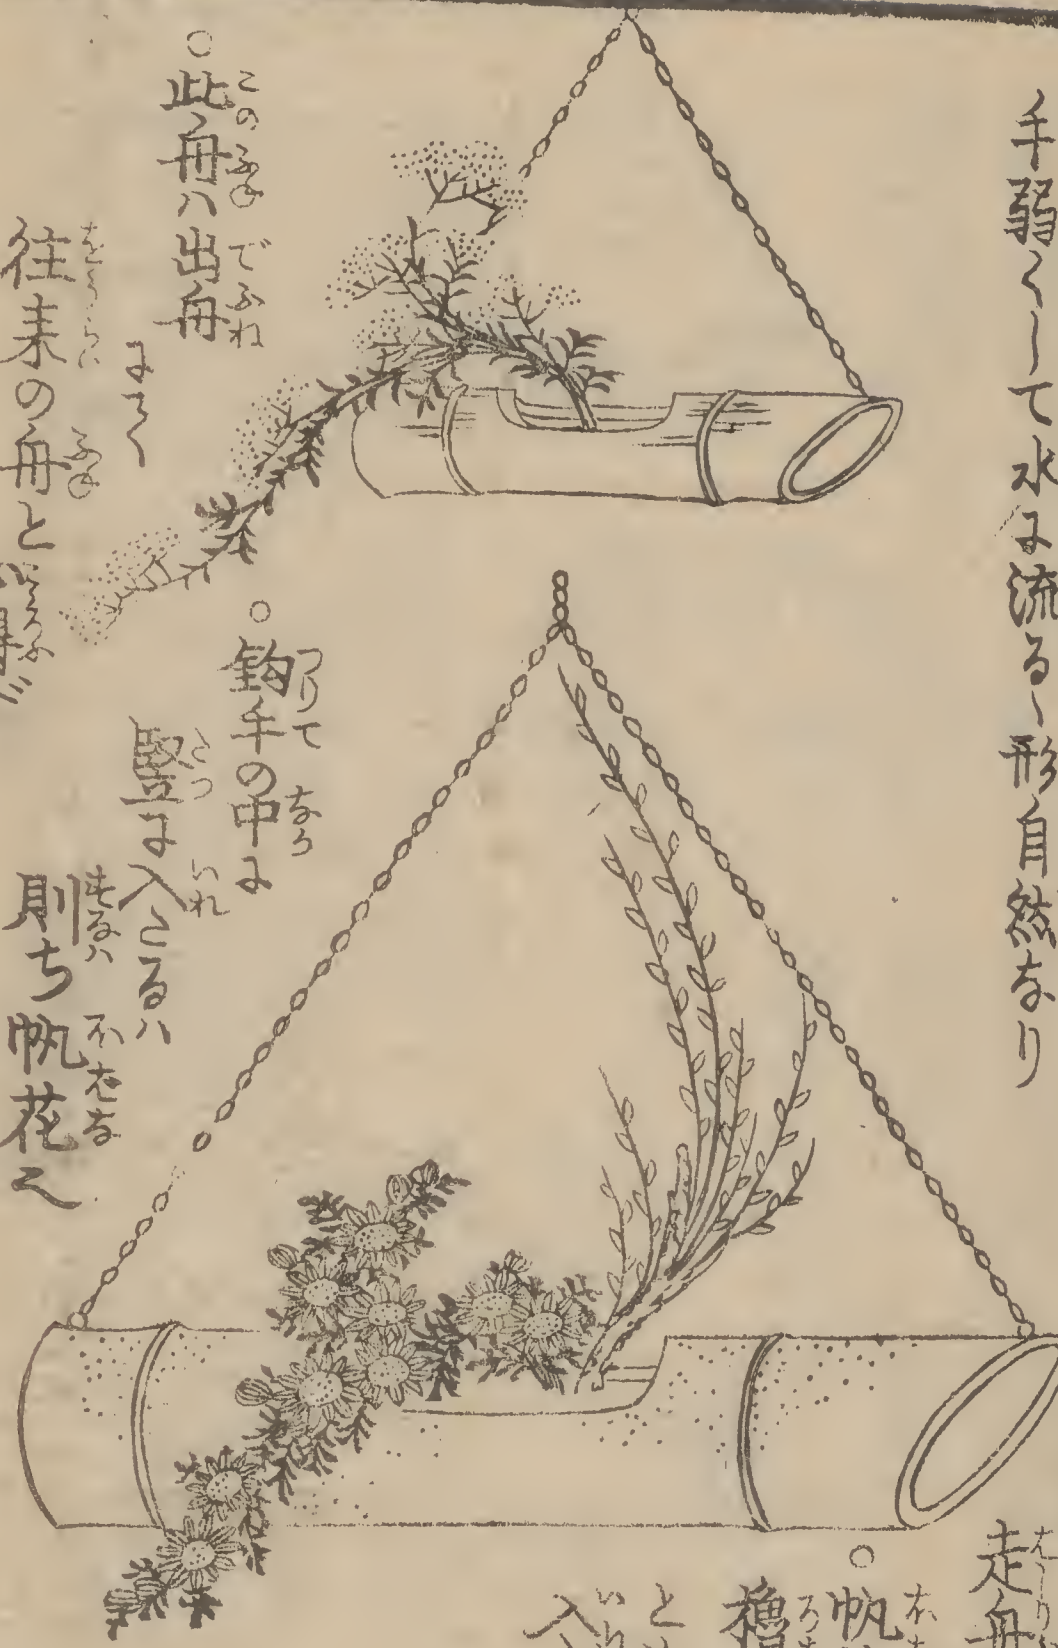 手弱くして水に流るゝ形自然なり
○此舟ハ出舟
にて
往来の舟と
○釣手の中に
竪に入たるハ
則ち帆花也
走舟
○帆
櫓
と
入